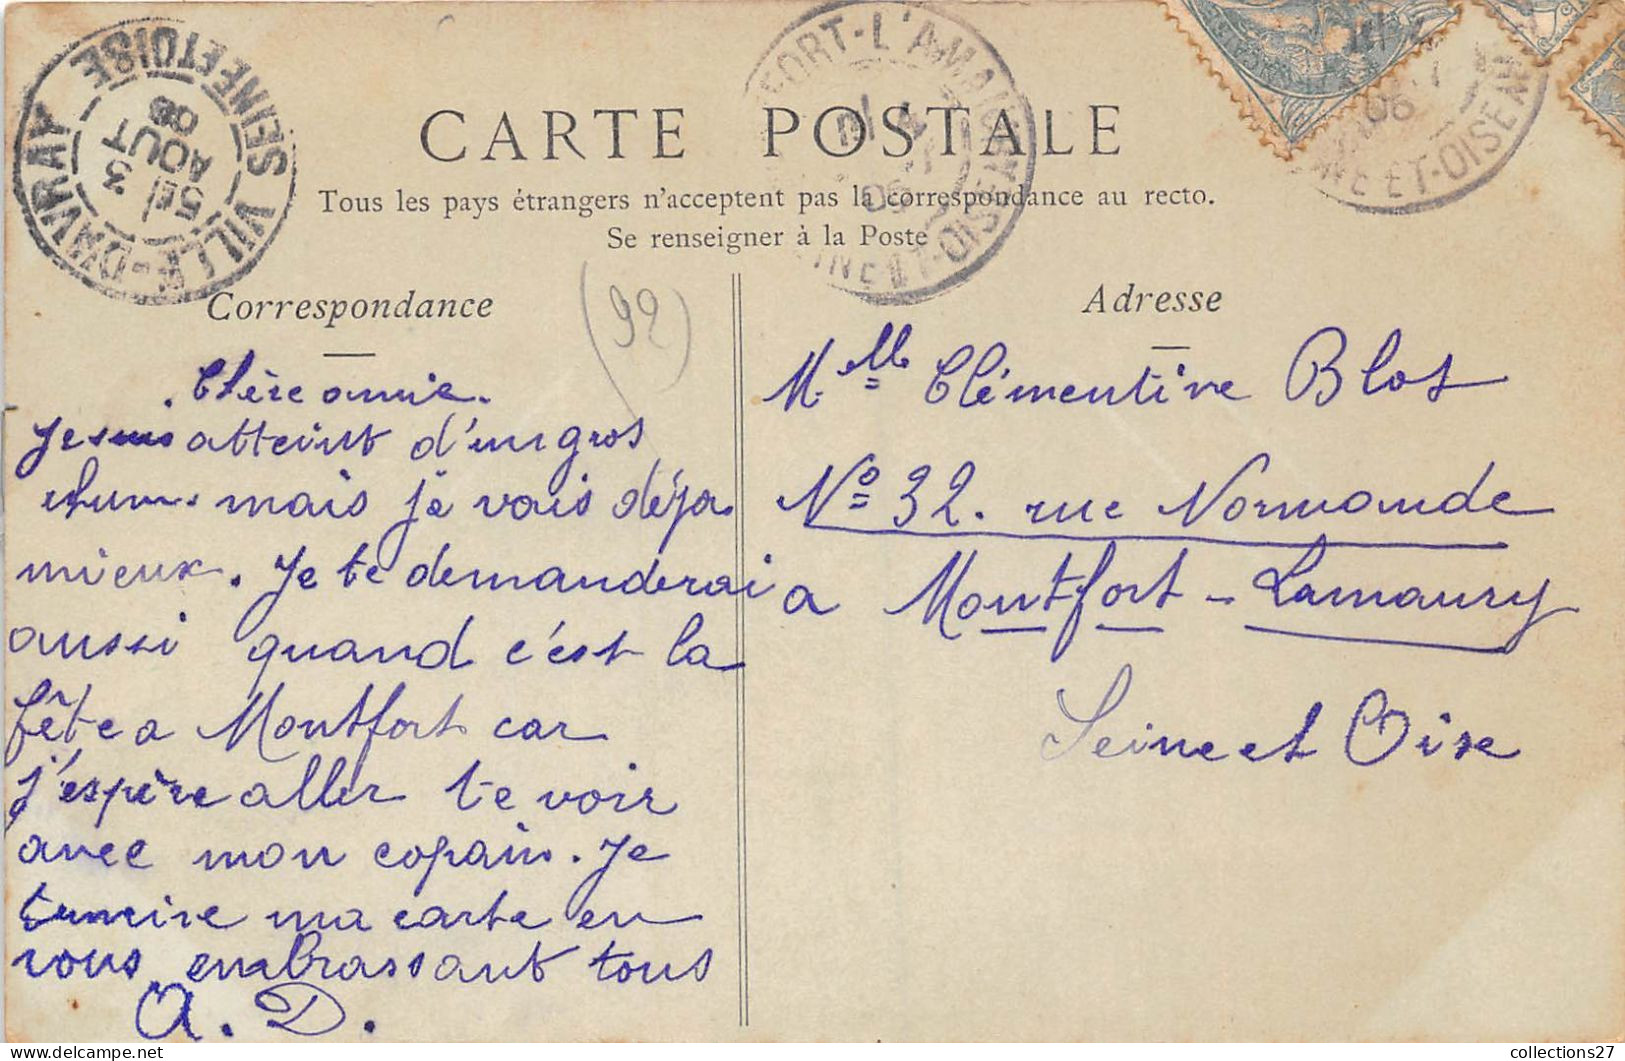 VILLE-D'AVRAY SEINE ET OISE
5E 3
AOUT
06
FORT-L'AMAURY
06
SEINE ET-OISE
06
SEINE ET-OISE
CARTE POSTALE
Tous les pays étrangers n'acceptent pas la correspondance au recto.
Se renseigner à la Poste
Correspondance
(92)
Chère amie.
Je suis atteint d'un gros
rhume mais je vais déja
mieux. Je te demanderai
aussi quand c'est la
fête a Montfort car
j'espère aller te voir
avec mon copain. Je
termine ma carte en
vous embrassant tous
A. D.
Adresse
Mlle Clémentine Blot
No 32. rue Normande
a Montfort-Lamaury
Seine et Oise
collections27